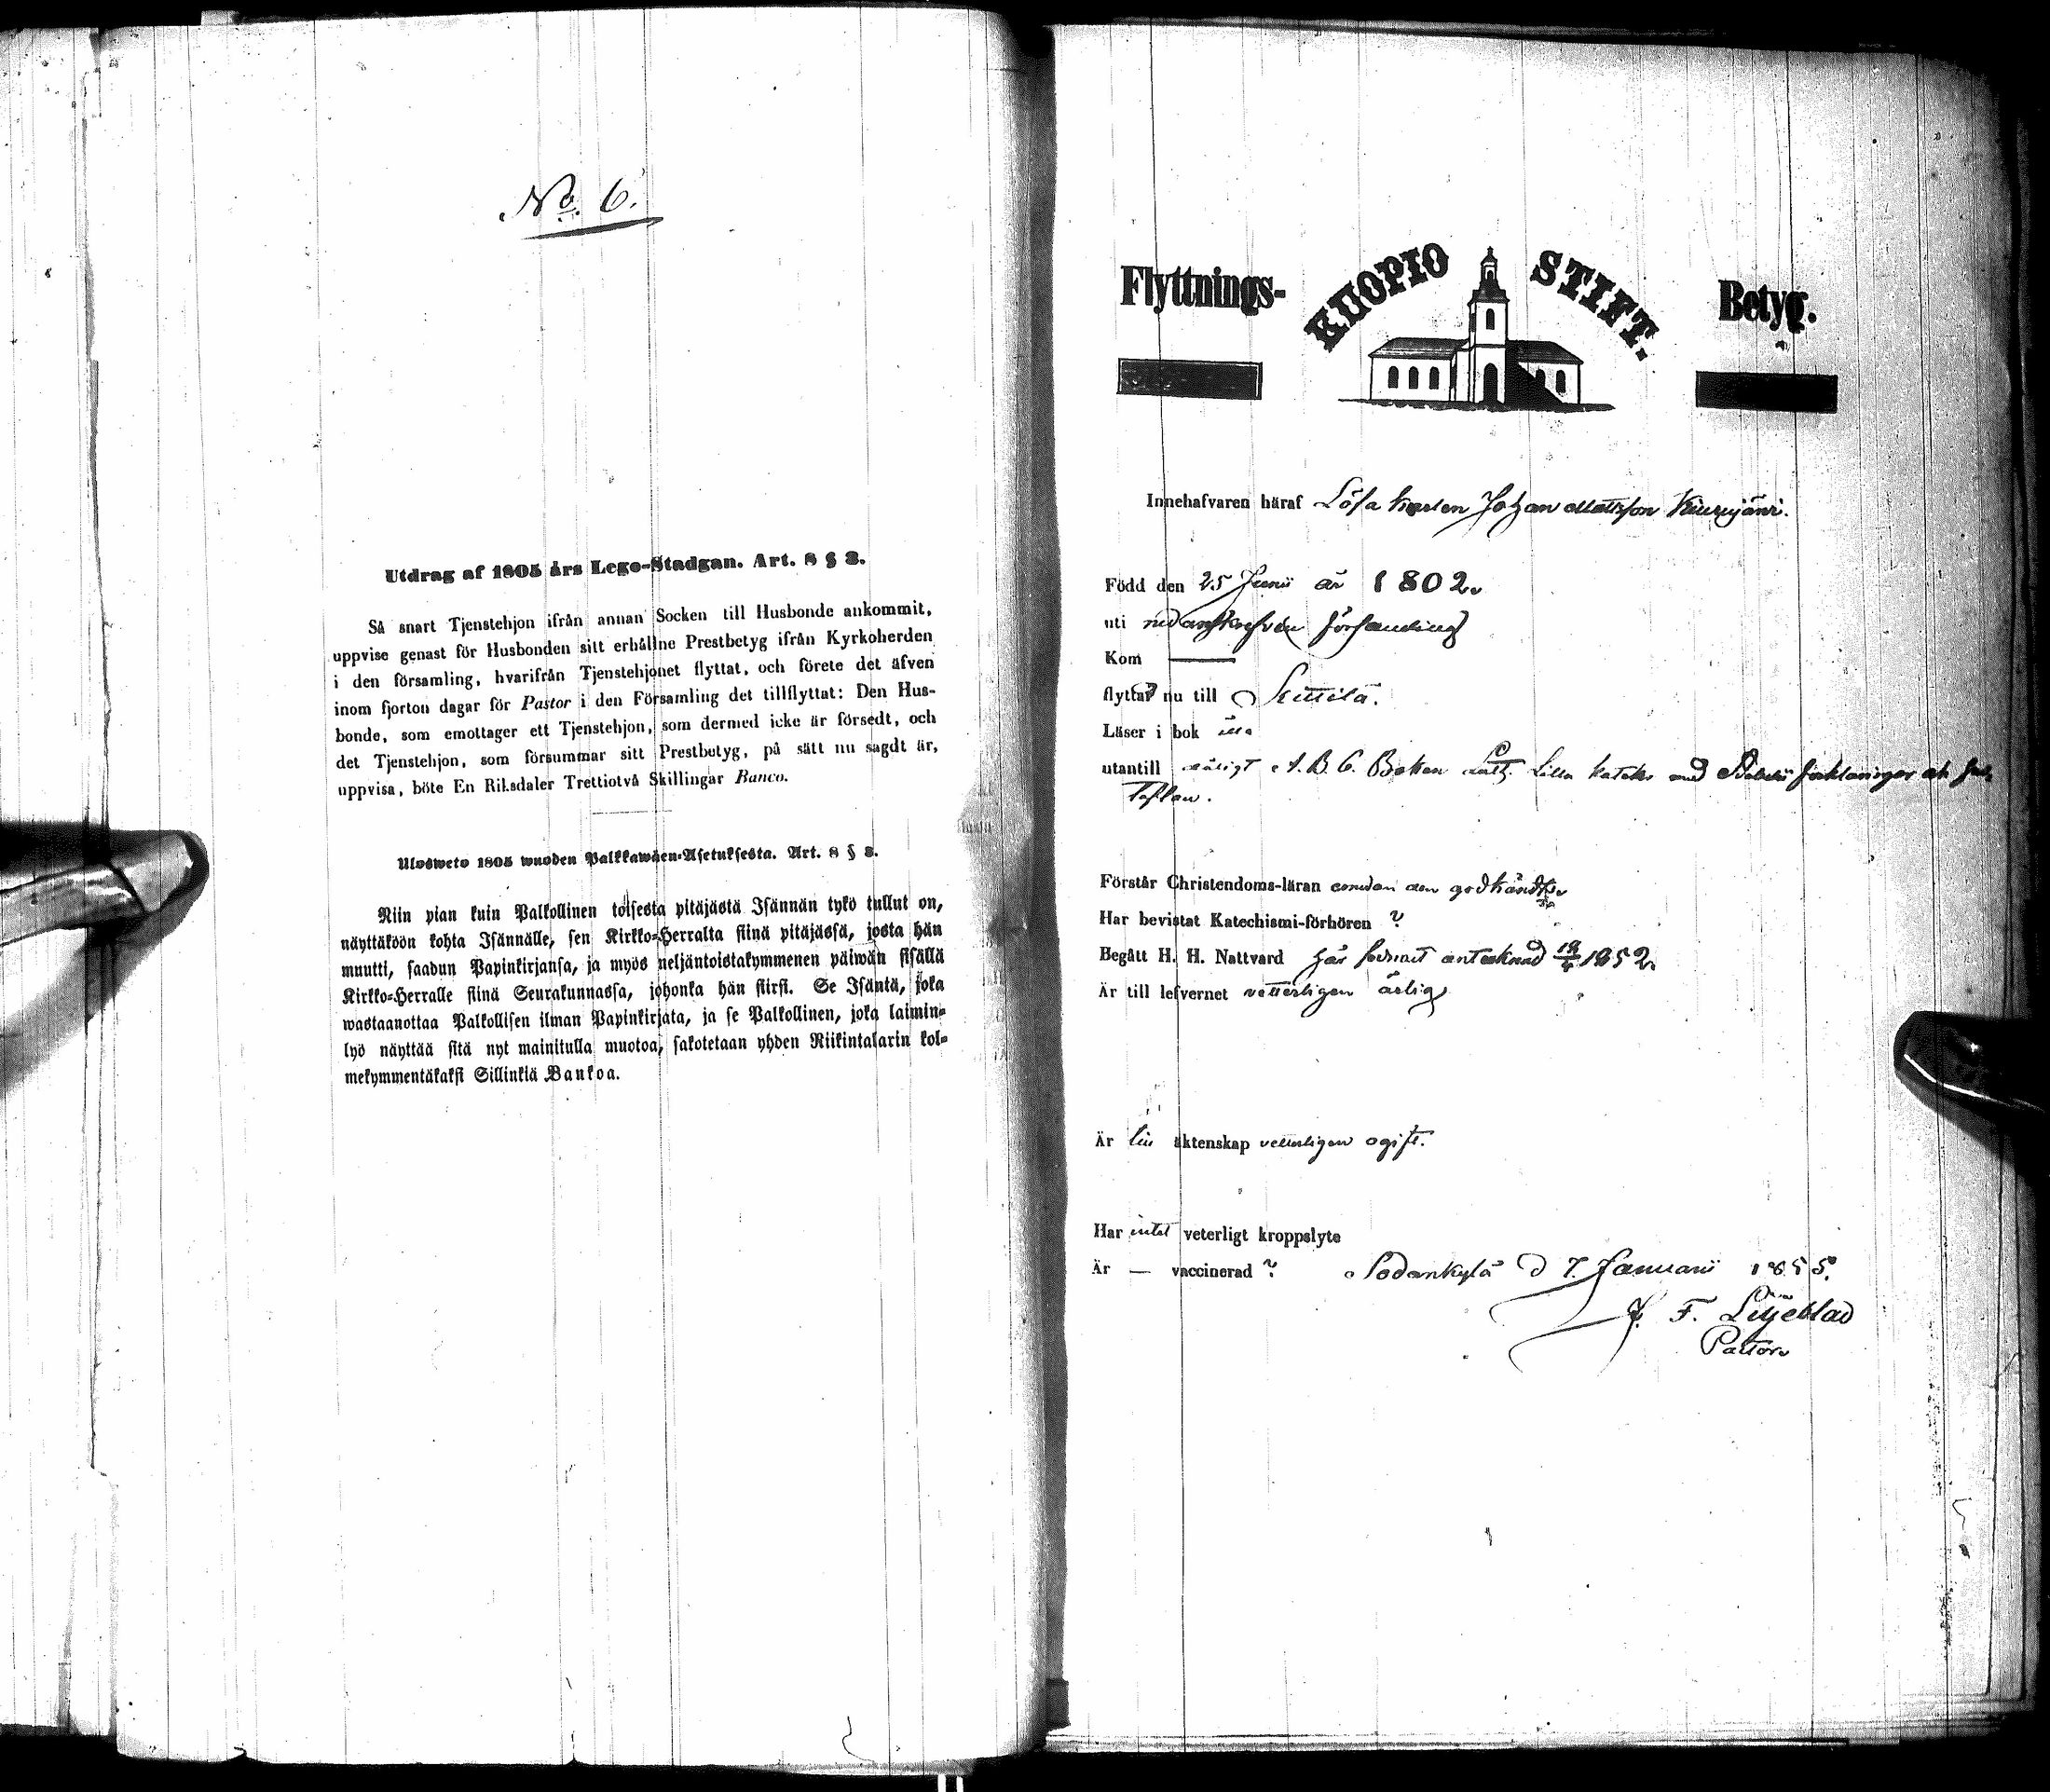 No. 6.
Utdrag af 1805 års Lego-Stadgan. Art. 8 § 3.
Så snart Tjenstehjon ifrån annan Socken till Husbonde ankommit,
uppvise genast för Husbonden sitt erhållne Prestbetyg ifrån Kyrkoherden
i den församling, hvarifrån Tjenstehjonet flyttat, och förete det äfven
inom fjorton dagar för Pastor i den Församling det tillflyttat: Den Hus-
bonde, som emottager ett Tjenstehjon, som dermed icke är försedt, och
det Tjenstehjon, som försummar sitt Prestbetyg, på sätt nu sagdt är,
uppvisa, böte En Riksdaler Trettiotvå Skillingar Banco.
Ulosweto 1805 wuoden Palkkawäen-Asetuksesta. Art. 8 § 3.
Niin pian kuin Palkollinen toisesta pitäjästä Isännän tykö tullut on,
näyttäköön kohta Isännälle, sen Kirkko-Herralta siinä pitäjässä, josta hän
muutti, saadun Papinkirjansa, ja myös neljäntoistakymmenen päiwän sisällä
Kirkko-Herralle siinä Seurakunnassa, johonka hän siirsi. Se Isäntä, joka
wastaanottaa Palkollisen ilman Papinkirjata, ja se Palkollinen, joka laimin-
lyö näyttää sitä nyt mainitulla muotoa, sakotetaan yhden Riikintalarin kol-
mekymmentäkaksi Sillinkiä Bankoa.
Flyttnings- KUOPIO STIFT. Betyg.
Innehafvaren häraf Lösa Karlen Johan Mattsson
Född den 25 Junii år 1802
uti nedanskrefven församling
Kom —
flyttar nu till Kittilä.
Läser i bok
utantill A.B.C. Boken Luth. Lilla Kateks med förklaringar och
Taflan.
Förstår Christendoms-läran
Har bevistat Katechismi-förhören ?
Begått H. H. Nattvard här sednast antecknad 1852
Är till lefvernet vetterligen ärlig
Är till äktenskap vetterligen ogift.
Har intet veterligt kroppslyte
Är — vaccinerad ? Sodankylä d 7. Januarii 1855.
J. F. Liljeblad
Pastor